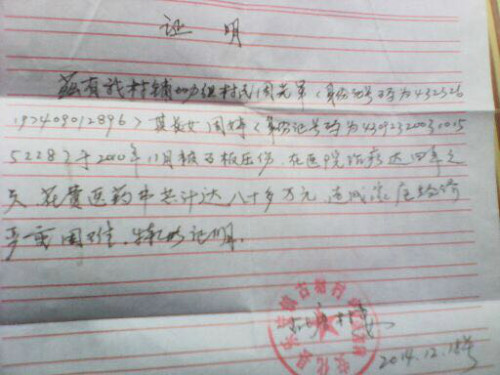 证 明
兹有我村辅助组村民周光军(身份证号码为432326
197409012896)其长女周婷(身份证号码为43092320031015
5228)于2010年11月被石板压伤,在医院治疗达四年之
久,花费医药费共计达八十多万元,造成家庭经济
严重困难,特此证明。
村
2014.12.18号